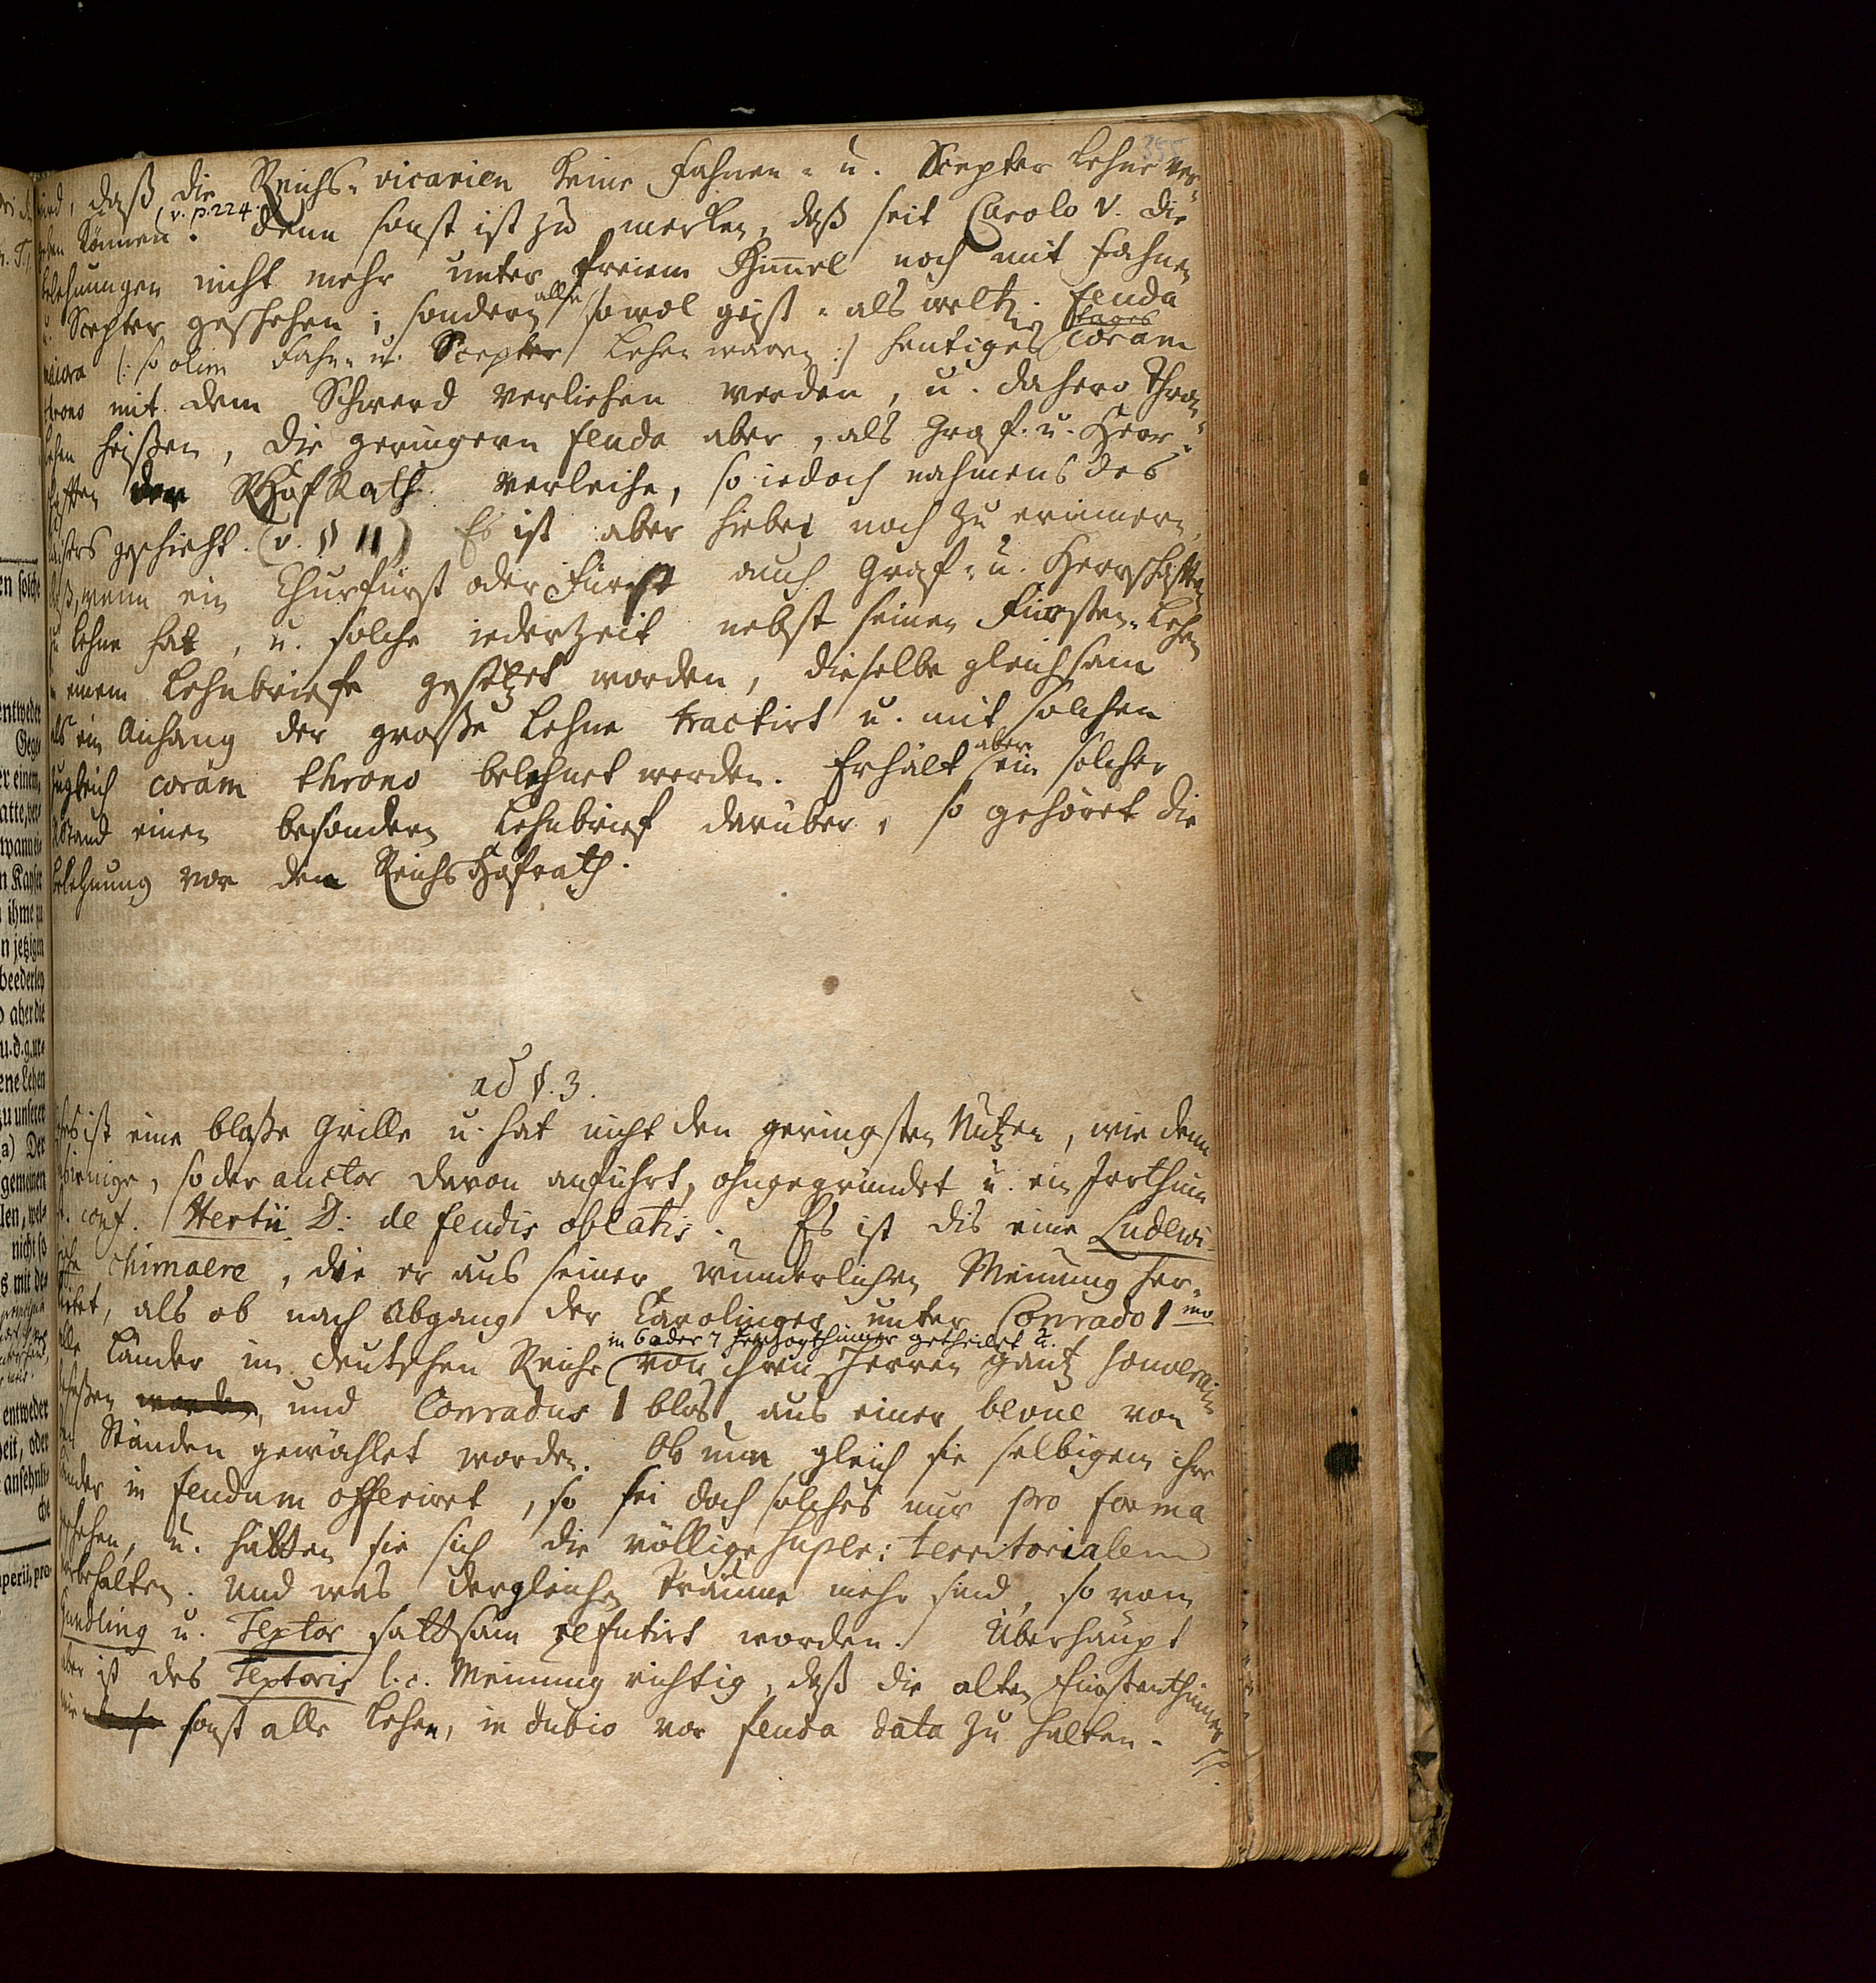 355
wird, daß die Reichs-vicarien keine Fahnen- u. Scepter Lehne ver-
leihen können. (v. p. 224.) Denn sonst ist zu merken, daß seit Carolo V. die
Belehnungen nicht mehr unter freiem Himmel noch mit Fahnen
u. Scepter geschehen; sondern alle sowol geist- als weltl. feuda
maiora (: so olim Fahn- u. Scepter Lehen waren :) heutiges tages coram
throno mit dem Schwerd verliehen werden, u. dahero Thron-
lehen heißen, die geringern feuda aber, als Graf- u. Herr-
schafften der RHofRath verleihe, so iedoch nahmens des
Kaisers geschieht. (v. § 11) Es ist aber hiebei noch zu erinnern,
daß, wenn ein Churfürst oder Fürst auch Graf- u. Herrschafften
zu Lehne hat, u. solche iederzeit nebst seinen Fürsten-Lehen
in einem Lehnbriefe gesetzet worden, dieselbe gleichsam
als ein Anhang der große Lehne tractirt u. mit solchen
zugleich coram throno belehnet werden. Erhält aber ein solcher
RStand einen besondern Lehnbrief darüber, so gehöret die
Belehnung vor den Reichs Hofrath.
ad §. 3.
ist eine bloße Grille u. hat nicht den geringsten Nutzen, wie denn
dasienige, so der auctor davon anführt, ohngegründet u. ein Irrthum
ist. conf. Hertii D. de feudis oblatis. Es ist dis eine Ludewi-
gsche chimaere, die er aus seiner wunderlichen Meinung her-
leitet, als ob nach Abgang der Carolinger unter Conrado 1mo
alle Länder im deutschen Reiche in 6 oder 7 Herzogthümer getheilet u. von ihren Herren gantz souverain
besessen worden, und Conradus 1 blos aus einer bevue von
den Ständen gewählet worden. Ob nun gleich sie selbigem ihre
Länder in feudum offeriret, so sei doch solches nur pro forma
geschehen, u. hätten sie sich die völlige super: territorialem
vorbehalten. Und was dergleichen Träume mehr sind, so von
Gundling u. Textor sattsam refutirt worden. Überhaupt
aber ist des Textoris l. c. Meinung richtig, daß die alten Fürstenthümer
wie sonst alle Lehen, in dubio vor feuda data zu halten.